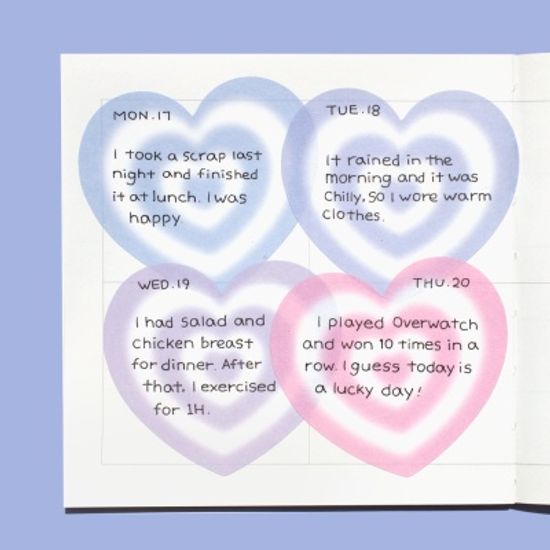 MON.17
I took a scrap last
night and finished
it at lunch. I was
happy
TUE.18
It rained in the
morning and it was
Chilly, SO I wore warm
clothes.
WED.19
I had Salad and
chicken breast
for dinner. After
that, I exercised
for 1H.
THU.20
I played Overwatch
and won 10 times in a
row. I guess today is
a lucky day!